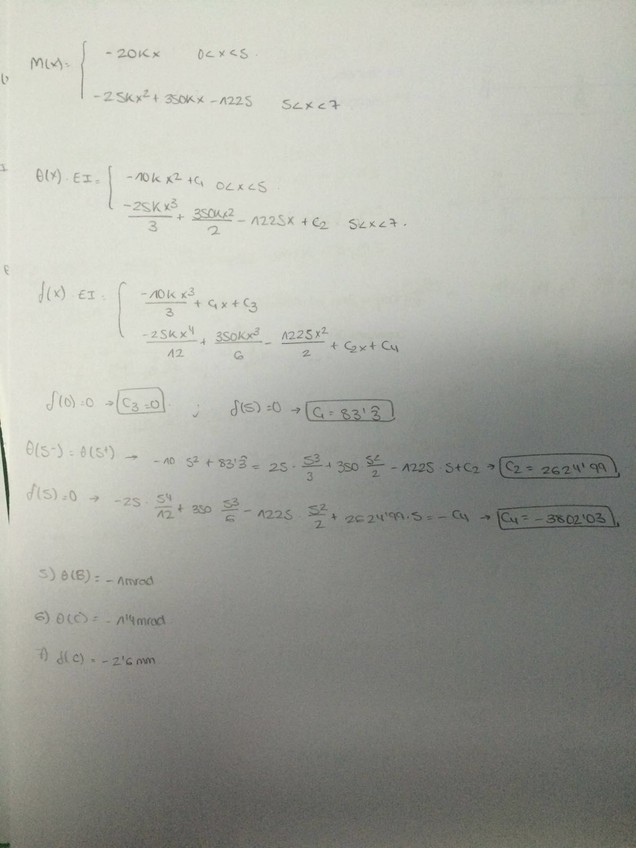 M(x)= { -20Kx 0<x<5.
-25Kx² + 350Kx - 1225 5<x<7.
θ(x)·EI = { -10Kx² + C₁ 0<x<5
-25Kx³/3 + 350Kx²/2 - 1225x + C₂ 5<x<7.
f(x)·EI = { -10Kx³/3 + C₁x + C₃
-25Kx⁴/12 + 350Kx³/6 - 1225x²/2 + C₂x + C₄
f(0)=0 → C₃=0 ; f(5)=0 → C₁=83'3̂
θ(5-)=θ(5+) → -10 5² + 83'3̂ = 25·5³/3 + 350 5²/2 - 1225·5 + C₂ → C₂=2624'99
f(5)=0 → -25·5⁴/12 + 350 5³/6 - 1225 5²/2 + 2624'99·5 = -C₄ → C₄=-3802'03
5) θ(B) = -1mrad
6) θ(C) = -1'4mrad
7) f(C) = -2'6mm